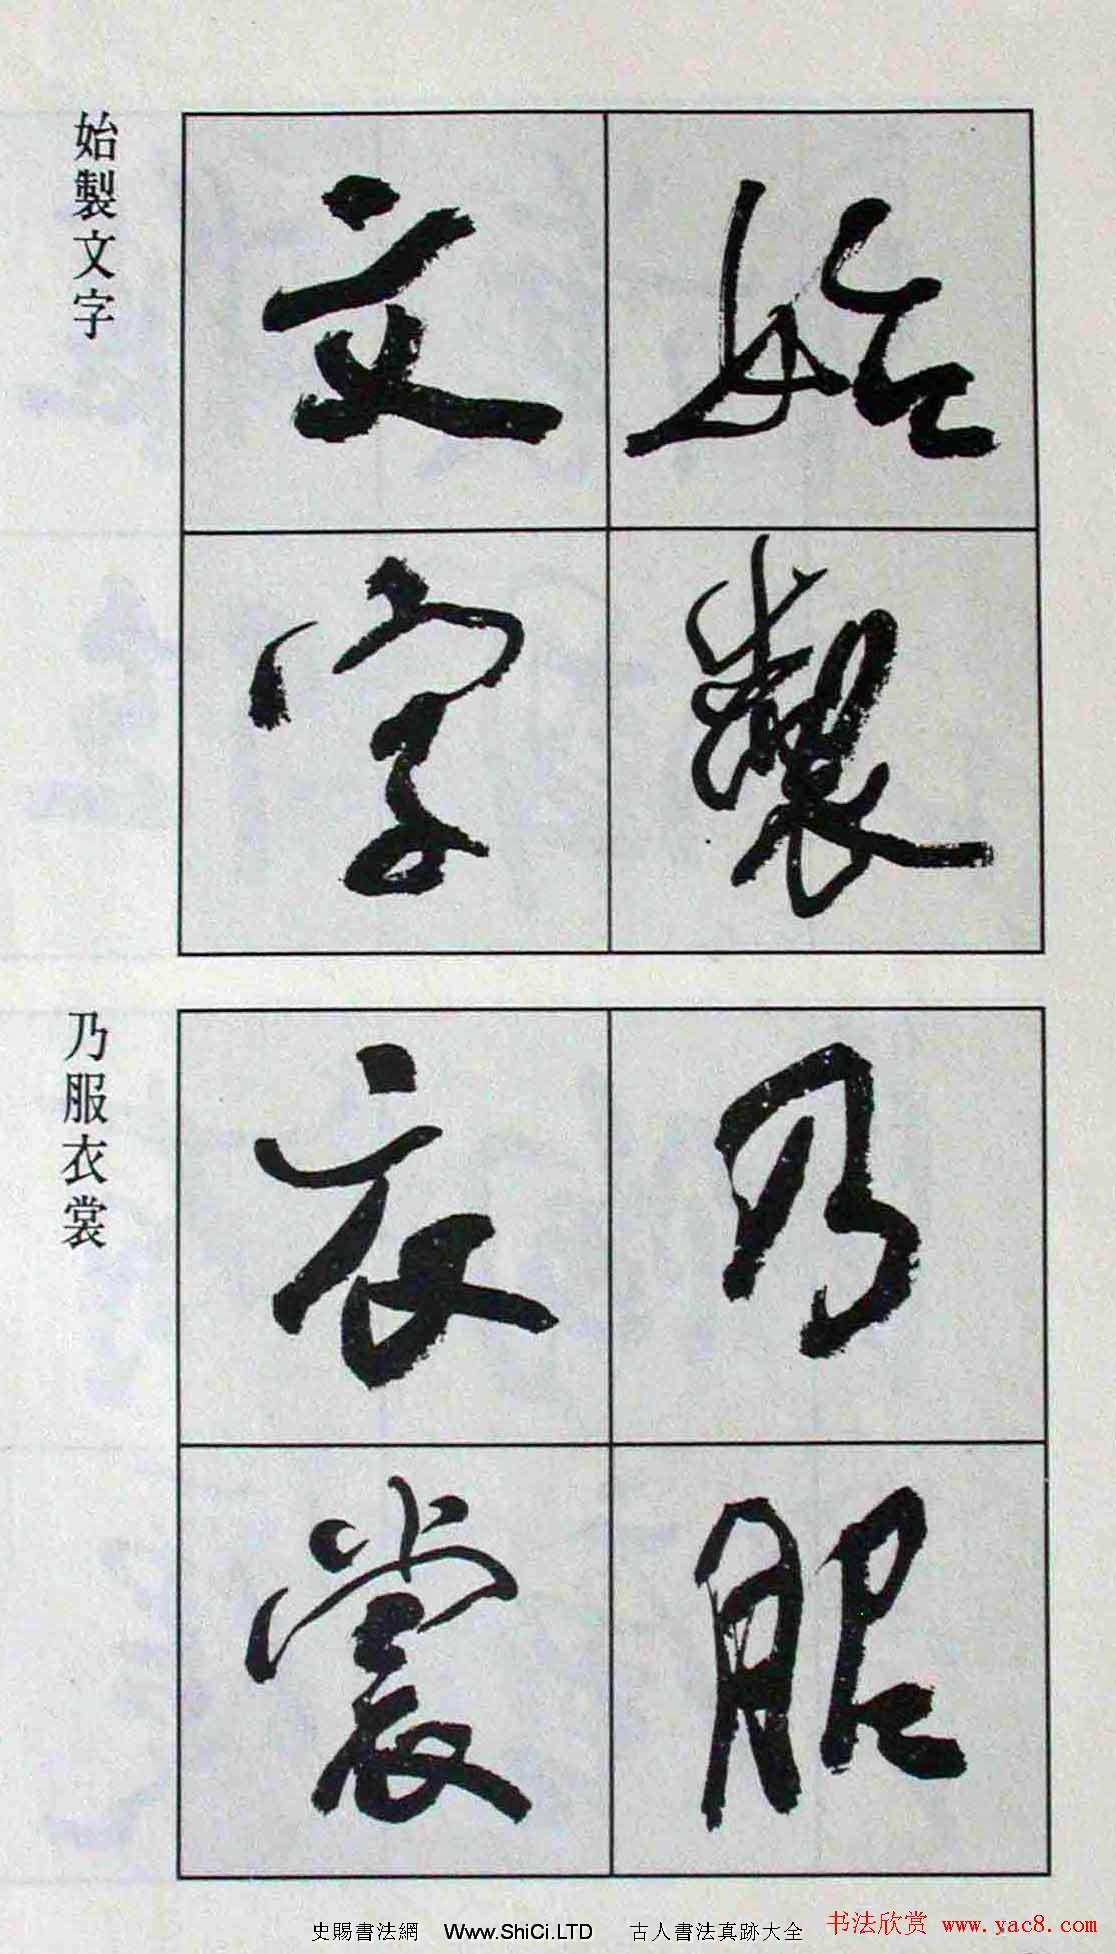 始製
文字
始製文字
乃服
衣裳
乃服衣裳
史賜書法網 Www.ShiCi.LTD 古人書法真跡大全
书法欣赏 www.yac8.com